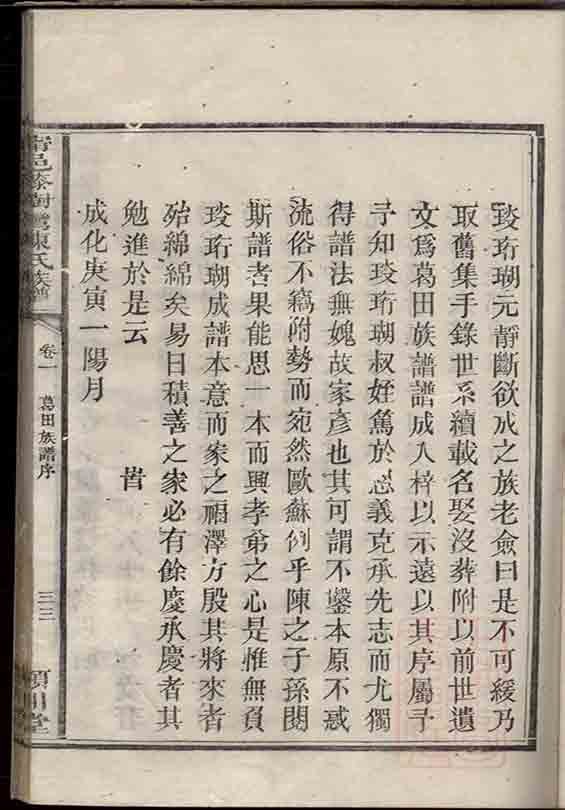 琰珩瑚元靜斷欲成之族老僉曰是不可緩乃
取舊集手錄世系續載名娶沒葬附以前世遺
文爲葛田族譜譜成入梓以示遠以其序屬予
予知琰珩瑚叔姪篤於恩義克承先志而尤獨
得譜法無媿故家彥也其可謂不鑿本原不惑
流俗不竊附勢而宛然歐蘇例乎陳之子孫閱
斯譜者果能思一本而興孝弟之心是惟無負
琰珩瑚成譜本意而家之福澤方殷其將來者
殆綿綿矣易曰積善之家必有餘慶承慶者其
勉進於是云
成化庚寅一陽月 旹
陳氏族譜
卷一
葛田族譜序
三三
潁川堂